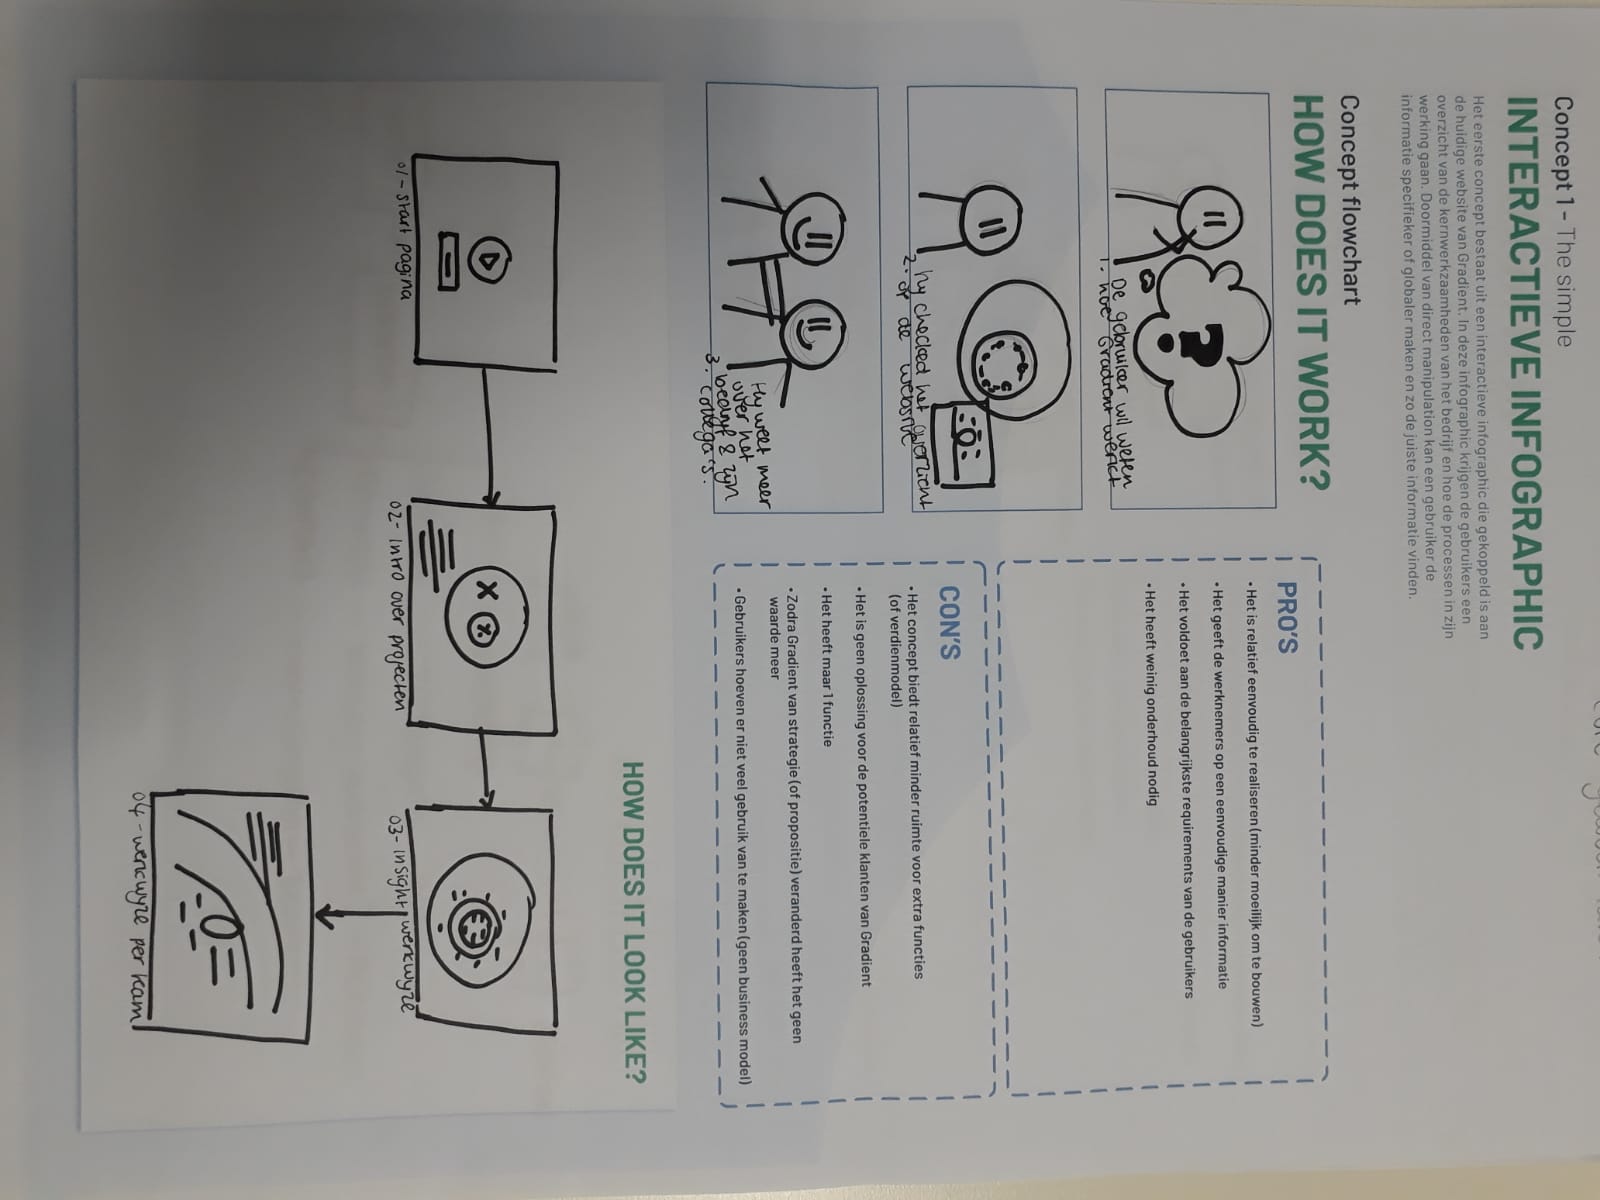 Concept 1 - The simple
INTERACTIEVE INFOGRAPHIC
Het eerste concept bestaat uit een interactieve infographic die gekoppeld is aan
de huidige website van Gradient. In deze infographic krijgen de gebruikers een
overzicht van de kernwerkzaamheden van het bedrijf en hoe de processen in zijn
werking gaan. Doormiddel van direct manipulation kan een gebruiker de
informatie specifieker of globaler maken en zo de juiste informatie vinden.
Concept flowchart
HOW DOES IT WORK?
?
De gebruiker wil weten
1. hoe Gradient werkt
hy checked het overzicht
2. op de website
Hy weet meer
over het
bedryf & zyn
3. collega's.
PRO'S
• Het is relatief eenvoudig te realiseren (minder moeilijk om te bouwen)
• Het geeft de werknemers op een eenvoudige manier informatie
• Het voldoet aan de belangrijkste requirements van de gebruikers
• Het heeft weinig onderhoud nodig
CON'S
• Het concept biedt relatief minder ruimte voor extra functies
(of verdienmodel)
• Het is geen oplossing voor de potentiele klanten van Gradient
• Het heeft maar 1 functie
• Zodra Gradient van strategie (of propositie) veranderd heeft het geen
waarde meer
• Gebruikers hoeven er niet veel gebruik van te maken (geen business model)
HOW DOES IT LOOK LIKE?
01 - start pagina
02 - intro over projecten
03 - insight werkwyze
04 - werkwyze per kan